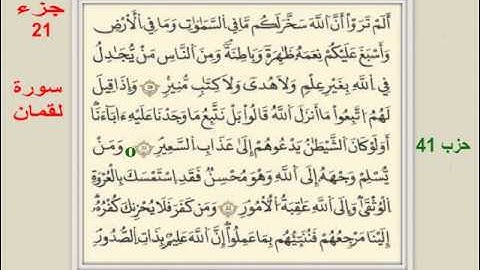 جزء
21
سورة
لقمان
حزب 41
أَلَمْ تَرَوْا أَنَّ اللَّهَ سَخَّرَ لَكُم مَّا فِي السَّمَاوَاتِ وَمَا فِي الْأَرْضِ
وَأَسْبَغَ عَلَيْكُمْ نِعَمَهُ ظَاهِرَةً وَبَاطِنَةً وَمِنَ النَّاسِ مَن يُجَادِلُ
فِي اللَّهِ بِغَيْرِ عِلْمٍ وَلَا هُدًى وَلَا كِتَابٍ مُّنِيرٍ ٢٠ وَإِذَا قِيلَ
لَهُمُ اتَّبِعُوا مَا أَنزَلَ اللَّهُ قَالُوا بَلْ نَتَّبِعُ مَا وَجَدْنَا عَلَيْهِ آبَاءَنَا
أَوَلَوْ كَانَ الشَّيْطَانُ يَدْعُوهُمْ إِلَى عَذَابِ السَّعِيرِ ٢١ وَمَن
يُسْلِمْ وَجْهَهُ إِلَى اللَّهِ وَهُوَ مُحْسِنٌ فَقَدِ اسْتَمْسَكَ بِالْعُرْوَةِ
الْوُثْقَى وَإِلَى اللَّهِ عَاقِبَةُ الْأُمُورِ ٢٢ وَمَن كَفَرَ فَلَا يَحْزُنكَ كُفْرُهُ
إِلَيْنَا مَرْجِعُهُمْ فَنُنَبِّئُهُم بِمَا عَمِلُوا إِنَّ اللَّهَ عَلِيمٌ بِذَاتِ الصُّدُورِ